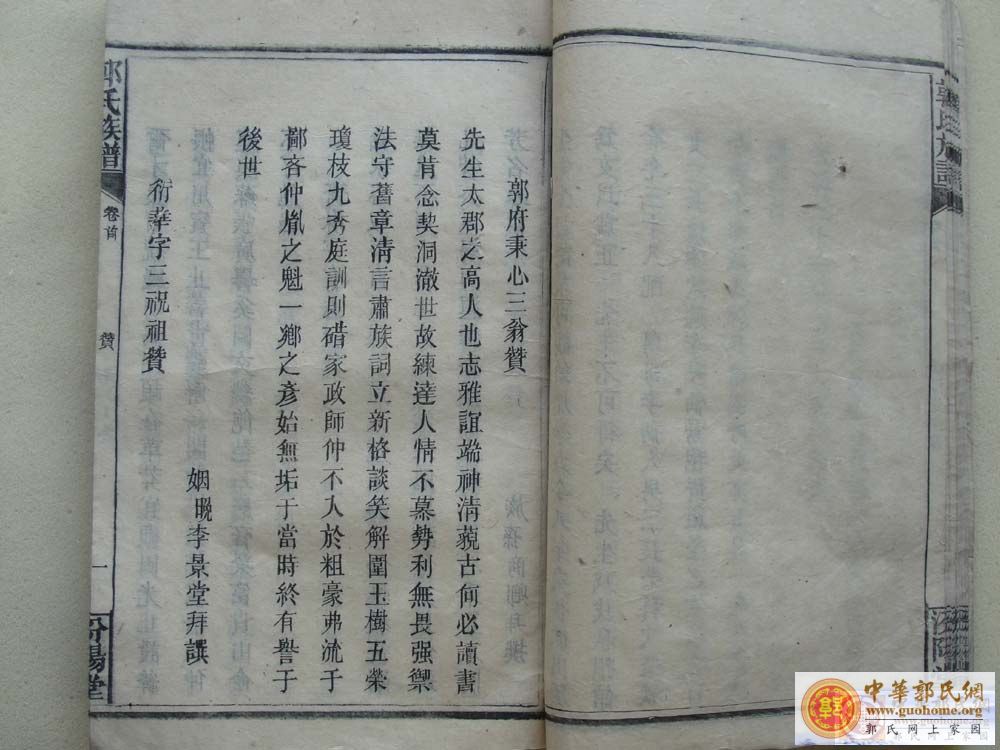 郭氏族譜
汾陽堂
郭府秉心三翁贊
先生太郡之高人也志雅誼端神清藐古何必讀書
莫肯念契洞澈世故練達人情不慕勢利無畏强禦
法守舊章清言肅族詞立新格談笑解圍玉樹五榮
瓊枝九秀庭訓則碏家政師仲不入於粗豪弗流于
鄙吝仲胤之魁一鄉之彥始無垢于當時終有譽于
後世
姻晚李景堂拜譔
衍莘字三祝祖贊
郭氏族譜
卷首
贊
一
汾陽堂
中華郭氏網
www.guohome.org
郭氏网上家园